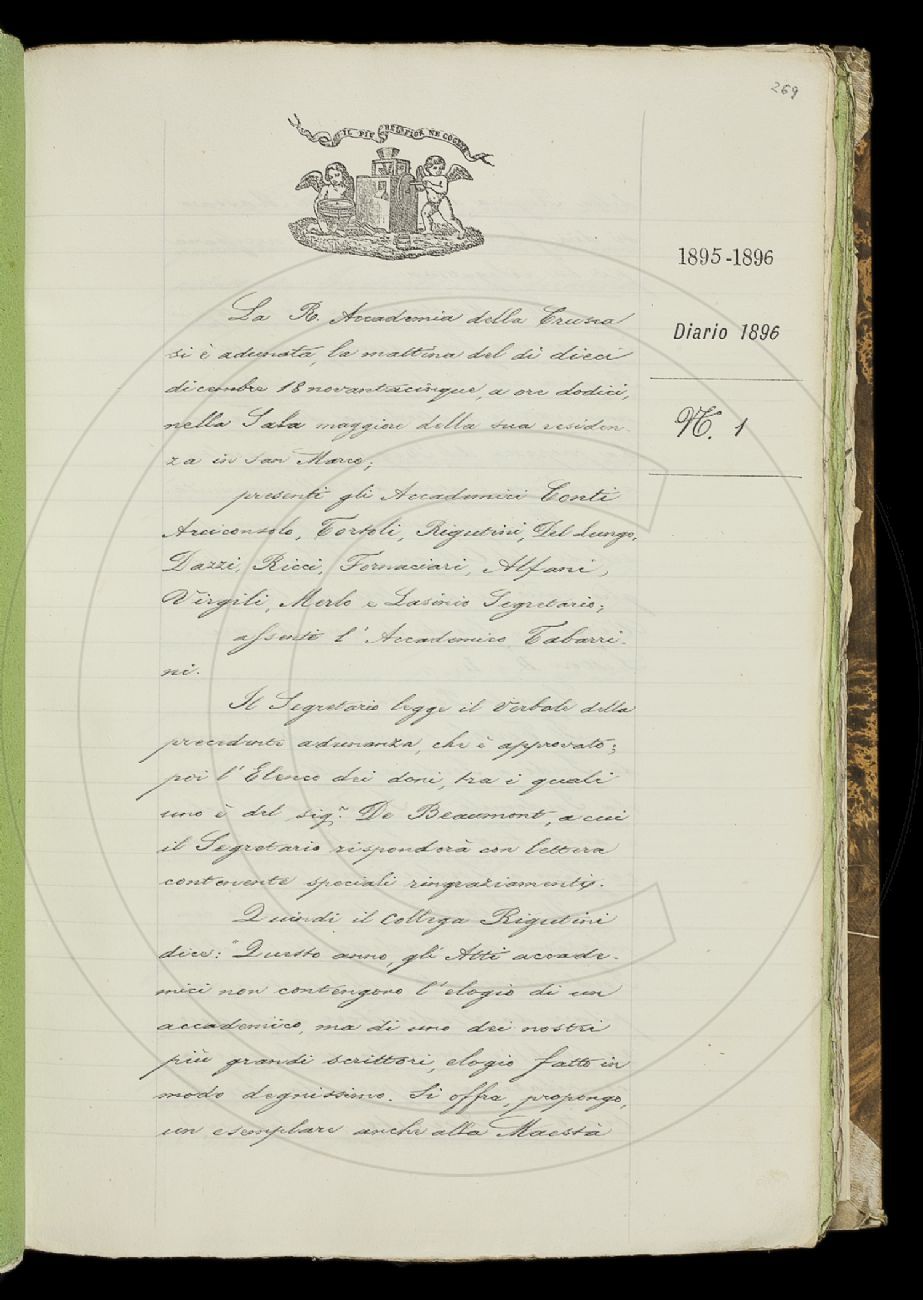 269
IL PIÙ BEL FIOR NE COGLIE
1895-1896
Diario 1896
N. 1
La R. Accademia della Crusca
si è adunata, la mattina del dì dieci
dicembre 18novantacinque, a ore dodici,
nella Sala maggiore della sua residen-
za in San Marco;
presenti gli Accademici Conti
Arciconsolo, Tortoli, Rigutini, Del Lungo,
Dazzi, Ricci, Fornaciari, Alfani,
Virgili, Merlo e Lasinio Segretario;
assente l'Accademico Tabarri-
ni.
Il Segretario legge il Verbale della
precedente adunanza, che è approvato;
poi l'Elenco dei doni, tra i quali
uno è del sigr. De Beaumont, a cui
il Segretario risponderà con lettera
contenente speciali ringraziamenti.
Quindi il collega Rigutini
dice: "Questo anno, gli Atti accade-
mici non contengono l'elogio di un
accademico, ma di uno dei nostri
più grandi scrittori, elogio fatto in
modo degnissimo. Si offra, propongo,
un esemplare anche alla Maestà